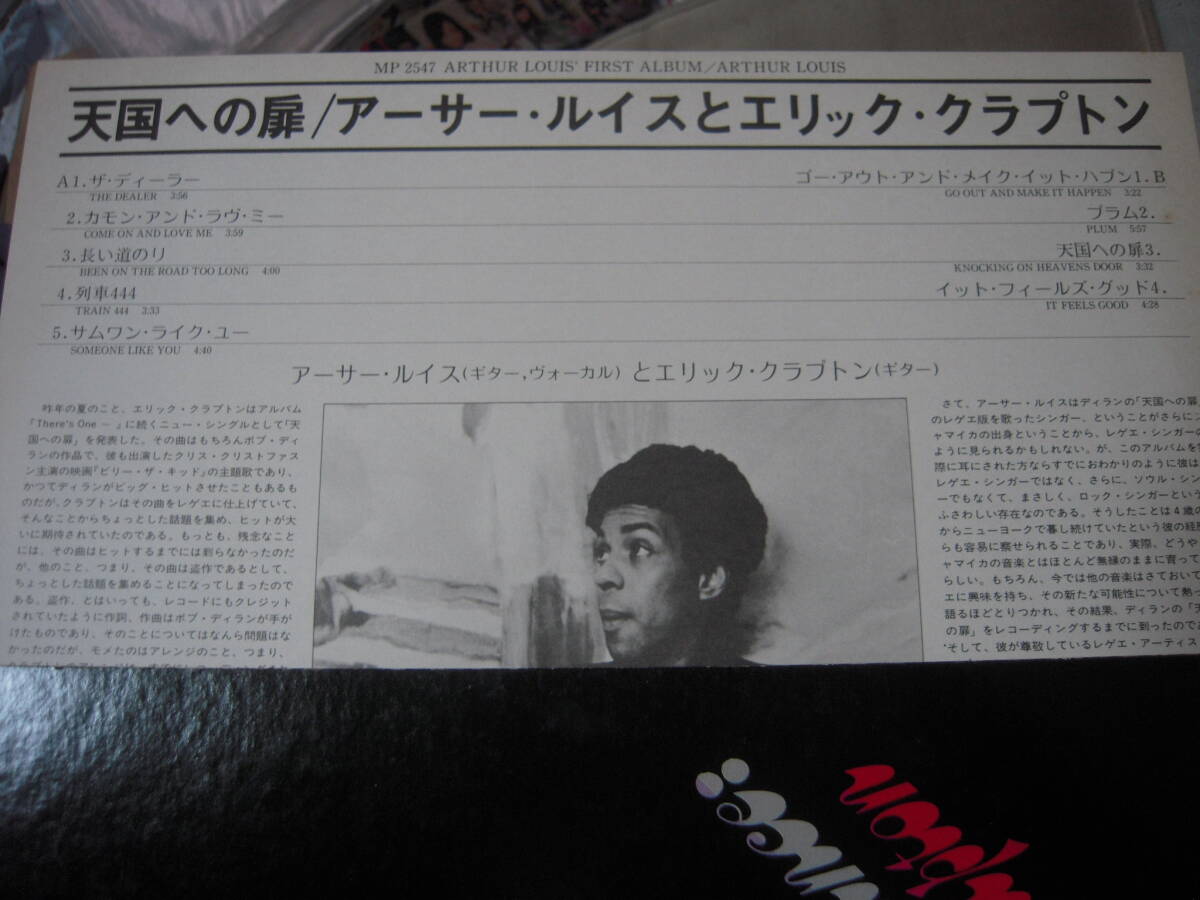 MP 2547 ARTHUR LOUIS' FIRST ALBUM/ARTHUR LOUIS
天国への扉/アーサー・ルイスとエリック・クラプトン
A1.ザ・ディーラー
THE DEALER 3:56
2.カモン・アンド・ラヴ・ミー
COME ON AND LOVE ME 3:59
3.長い道のり
BEEN ON THE ROAD TOO LONG 4:00
4.列車444
TRAIN 444 3:33
5.サムワン・ライク・ユー
SOMEONE LIKE YOU 4:40
ゴー・アウト・アンド・メイク・イット・ハプン1.B
GO OUT AND MAKE IT HAPPEN 3:22
プラム2.
PLUM 5:57
天国への扉3.
KNOCKING ON HEAVENS DOOR 3:32
イット・フィールズ・グッド4.
IT FEELS GOOD 4:28
アーサー・ルイス(ギター,ヴォーカル)とエリック・クラプトン(ギター)
昨年の夏のこと、エリック・クラプトンはアルバム
『There's One ─ 』に続くニュー・シングルとして「天
国への扉」を発表した。その曲はもちろんボブ・ディ
ランの作品で、彼も出演したクリス・クリストファスン
主演の映画『ビリー・ザ・キッド』の主題歌であり、
かつてディランがビッグ・ヒットさせたこともあるも
のだが、クラプトンはその曲をレゲエに仕上げていて、
そんなことからちょっとした話題を集め、ヒットが大
いに期待されていたのである。もっとも、残念なこと
には、その曲はヒットするまでには到らなかったのだ
が、他のこと、つまり、その曲は盗作であるとして、
ちょっとした話題を集めることになってしまったので
ある。盗作、とはいっても、レコードにもクレジット
されていたように作詞、作曲はボブ・ディランが手が
けたものであり、そのことについてはなんら問題はな
かったのだが、モメたのはアレンジのこと、つまり、
さて、アーサー・ルイスはディランの「天国への扉」
のレゲエ版を歌ったシンガー、ということがさらにジ
ャマイカの出身ということから、レゲエ・シンガーの
ように見られるかもしれない。が、このアルバムを実
際に耳にされた方ならすでにおわかりのように彼は
レゲエ・シンガーではなく、さらに、ソウル・シン
ーでもなくて、まさしく、ロック・シンガーという
ふさわしい存在なのである。そうしたことは4歳の
からニューヨークで暮し続けていたという彼の経
らも容易に察せられることであり、実際、どうや
ャマイカの音楽とはほとんど無縁のままに育って
らしい。もちろん、今では他の音楽はさておいて
エに興味を持ち、その新たな可能性について熱っ
語るほどとりつかれ、その結果、ディランの「天
の扉」をレコーディングするまでに到ったのであ
そして、彼が尊敬しているレゲエ・アーティス